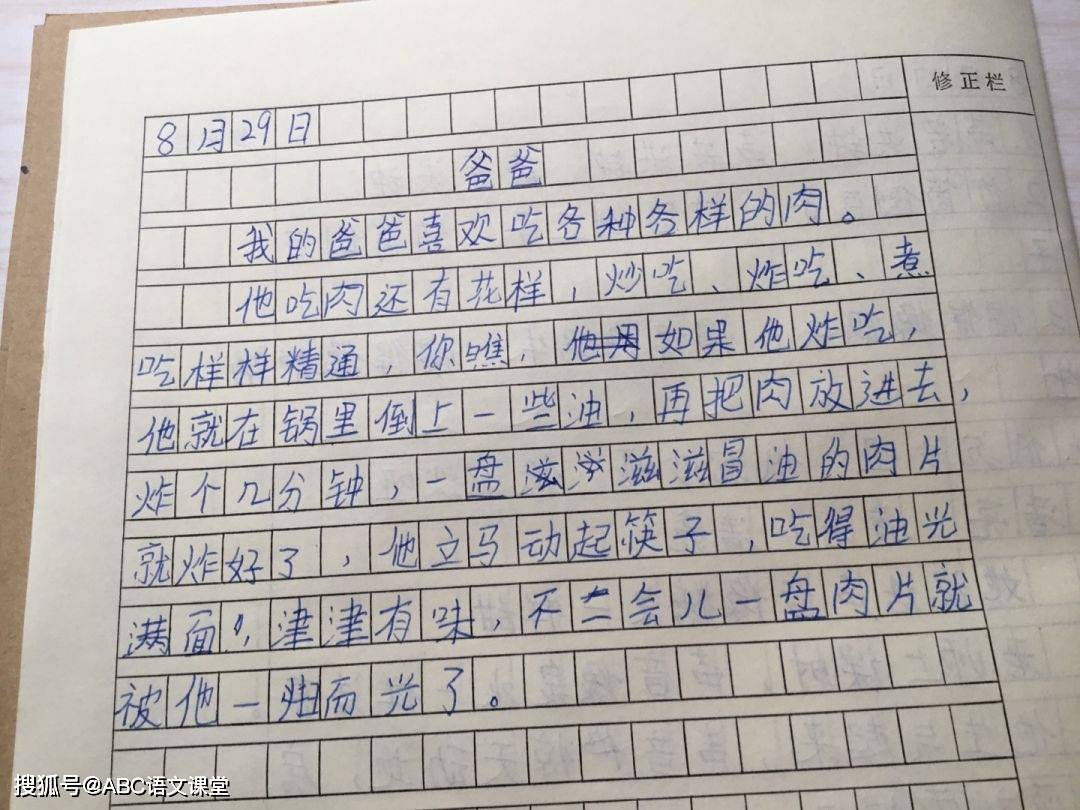 修正栏
8月29日
爸爸
我的爸爸喜欢吃各种各样的肉。
他吃肉还有花样，炒吃、炸吃、煮
吃样样精通，你瞧，如果他炸吃，
他就在锅里倒上一些油，再把肉放进去，
炸个几分钟，一盘滋滋冒油的肉片
就炸好了，他立马动起筷子，吃得油光
满面，津津有味，不一会儿一盘肉片就
被他一扫而光了。
搜狐号@ABC语文课堂